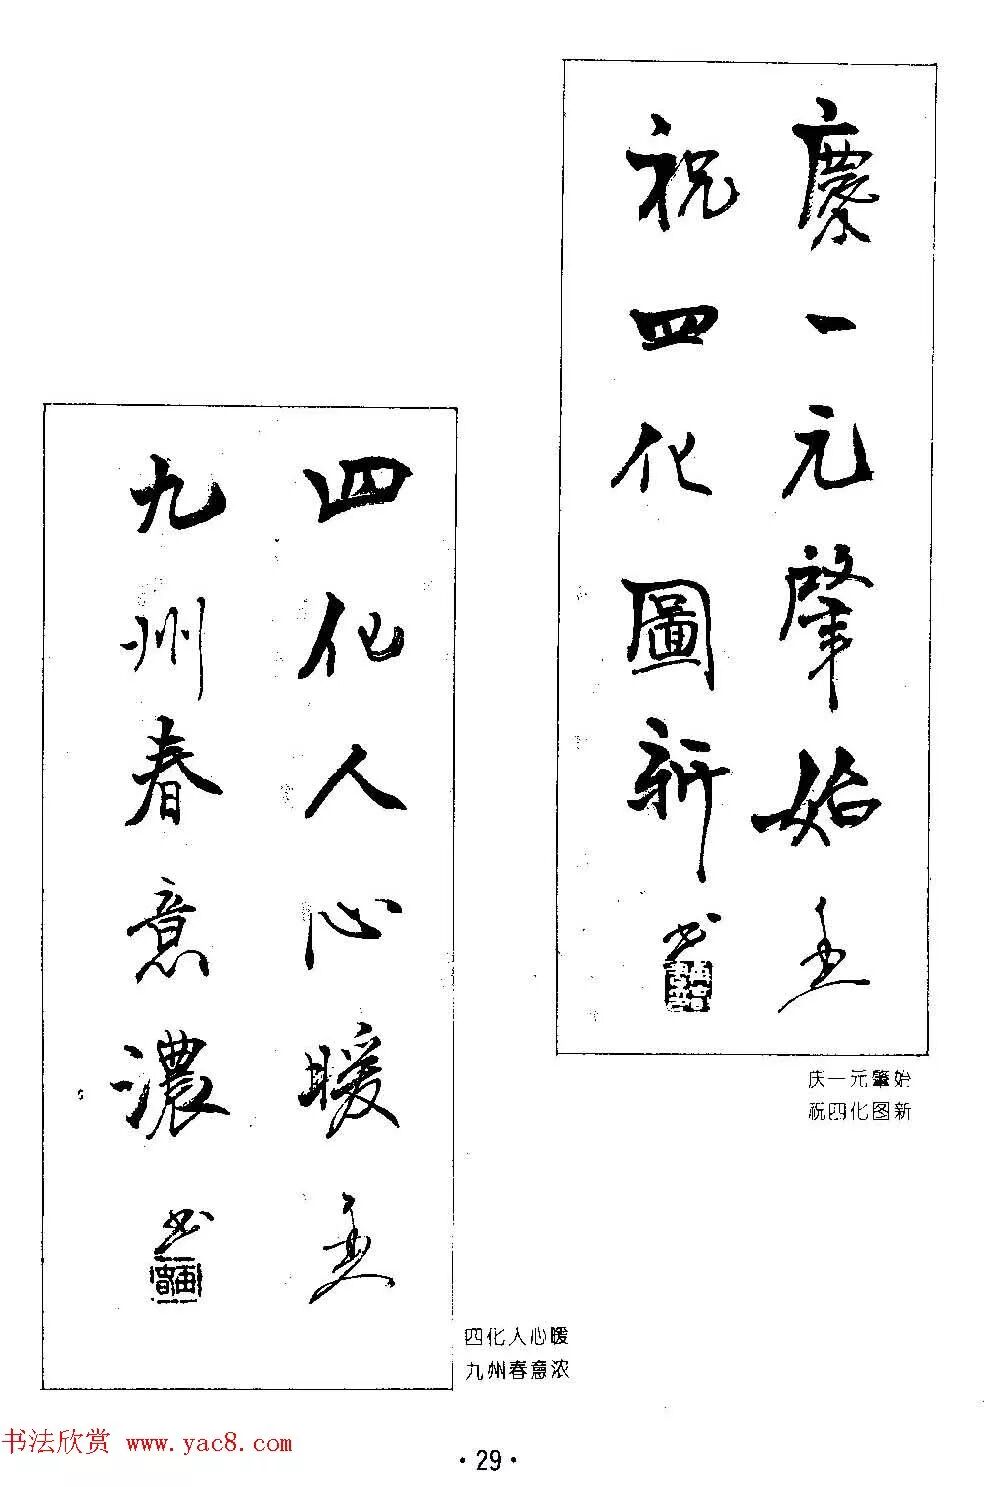 慶一元肇始
祝四化圖新
书
庆一元肇始
祝四化图新
四化人心暖
九州春意濃
书
四化人心暖
九州春意浓
书法欣赏 www.yac8.com
·29·